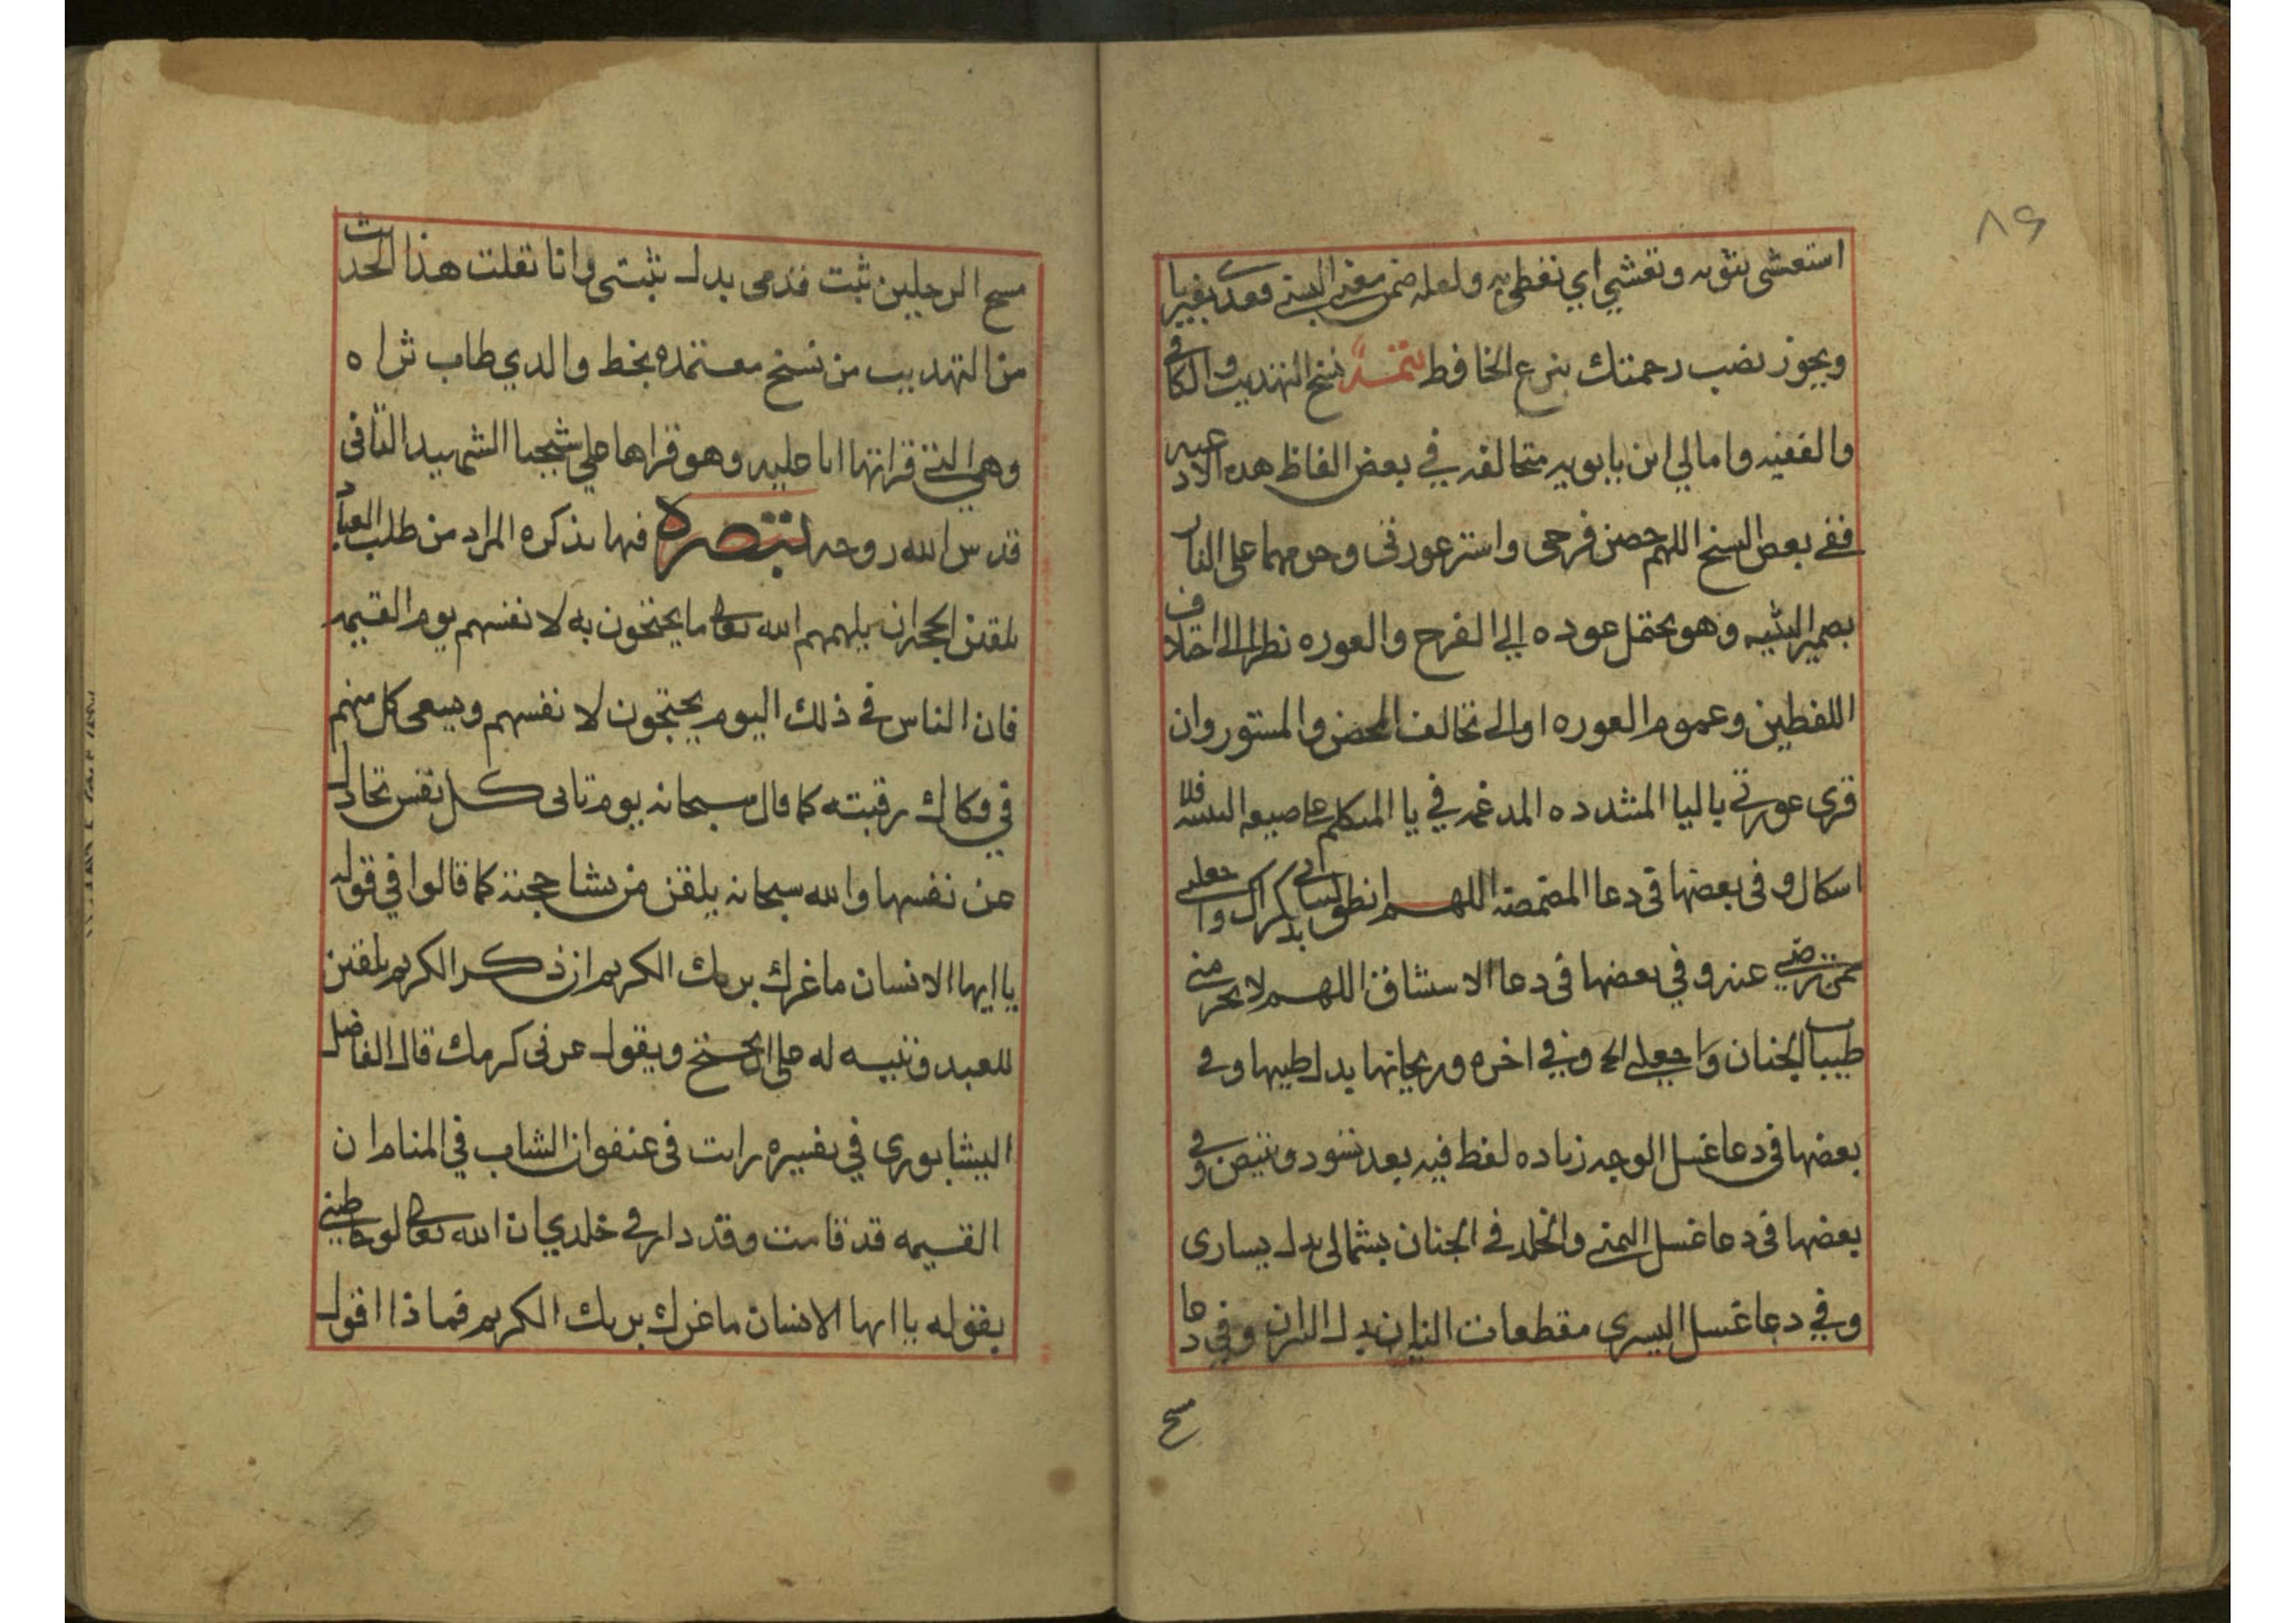 ٨٩
استغشى بثوبه وتغشي اي تغطي به ولعله ضمن معنى الستر فعدي بغير با
ويجوز نصب رحمتك بنزع الخافض تتمة نسخ التهذيب والكافي
والفقيه وامالي ابن بابويه متخالفه في بعض الفاظ هذه الادعيه
ففي بعض النسخ اللهم حصن فرجى واستر عورتى وحرمهما على النار
بضمير التثنيه وهو يحتمل عوده الي الفرج والعوره نظرا الى اختلاف
اللفظين وعموم العوره او الى تخالف المحصن والمستور وان
قرى عورتي باليا المشدده المدغمه في يا المتكلم على صيغه التثنيه فلا
اشكال وفى بعضها فى دعا المضمضه اللهم انطق لسانى بذكرك واجعلني
ممن ترضي عنه وفي بعضها فى دعا الاستنشاق اللهم لا تحرمني
طيبات الجنان واجعلني الخ وفي اخره وريحانها بدل طيبها وفي
بعضها فى دعا غسل الوجه زياده لفظ فيه بعد تسود وتبيض وفي
بعضها فى دعا غسل اليمنى والخلد في الجنان بشمالى بدل يسارى
وفي دعا غسل اليسرى مقطعات النيران بدل النيران وفي دعا
مسح
مسح الرجلين ثبت قدمى بدل ثبتنى وانا نقلت هذا الحديث
من التهذيب من نسخ معتمده بخط والدي طاب ثراه
وهي التى قراتها انا عليه وهو قراها علي شيخنا الشهيد الثانى
قدس الله روحه تبصرة فيها تذكره المراد من طلب العباد
تلقين الحجه ان يلهمهم الله تعالى ما يحتجون به لانفسهم يوم القيمه
فان الناس في ذلك اليوم يحتجون لانفسهم ويسعى كل منهم
في فكاك رقبته كما قال سبحانه يوم تاتى كل نفس تجادل
عن نفسها والله سبحانه يلقن من يشا حجته كما قالوا في قوله
يا ايها الانسان ما غرك بربك الكريم ان ذكر الكريم تلقين
للعبد وتنبيه له على ان يحتج ويقول غرنى كرمك قال الفاضل
النيشابورى في تفسيره رايت فى عنفوان الشباب في المنام ان
القيمه قد قامت وقد دار في خلدي ان الله تعالى لو خاطبني
بقوله يا ايها الانسان ما غرك بربك الكريم فماذا اقول